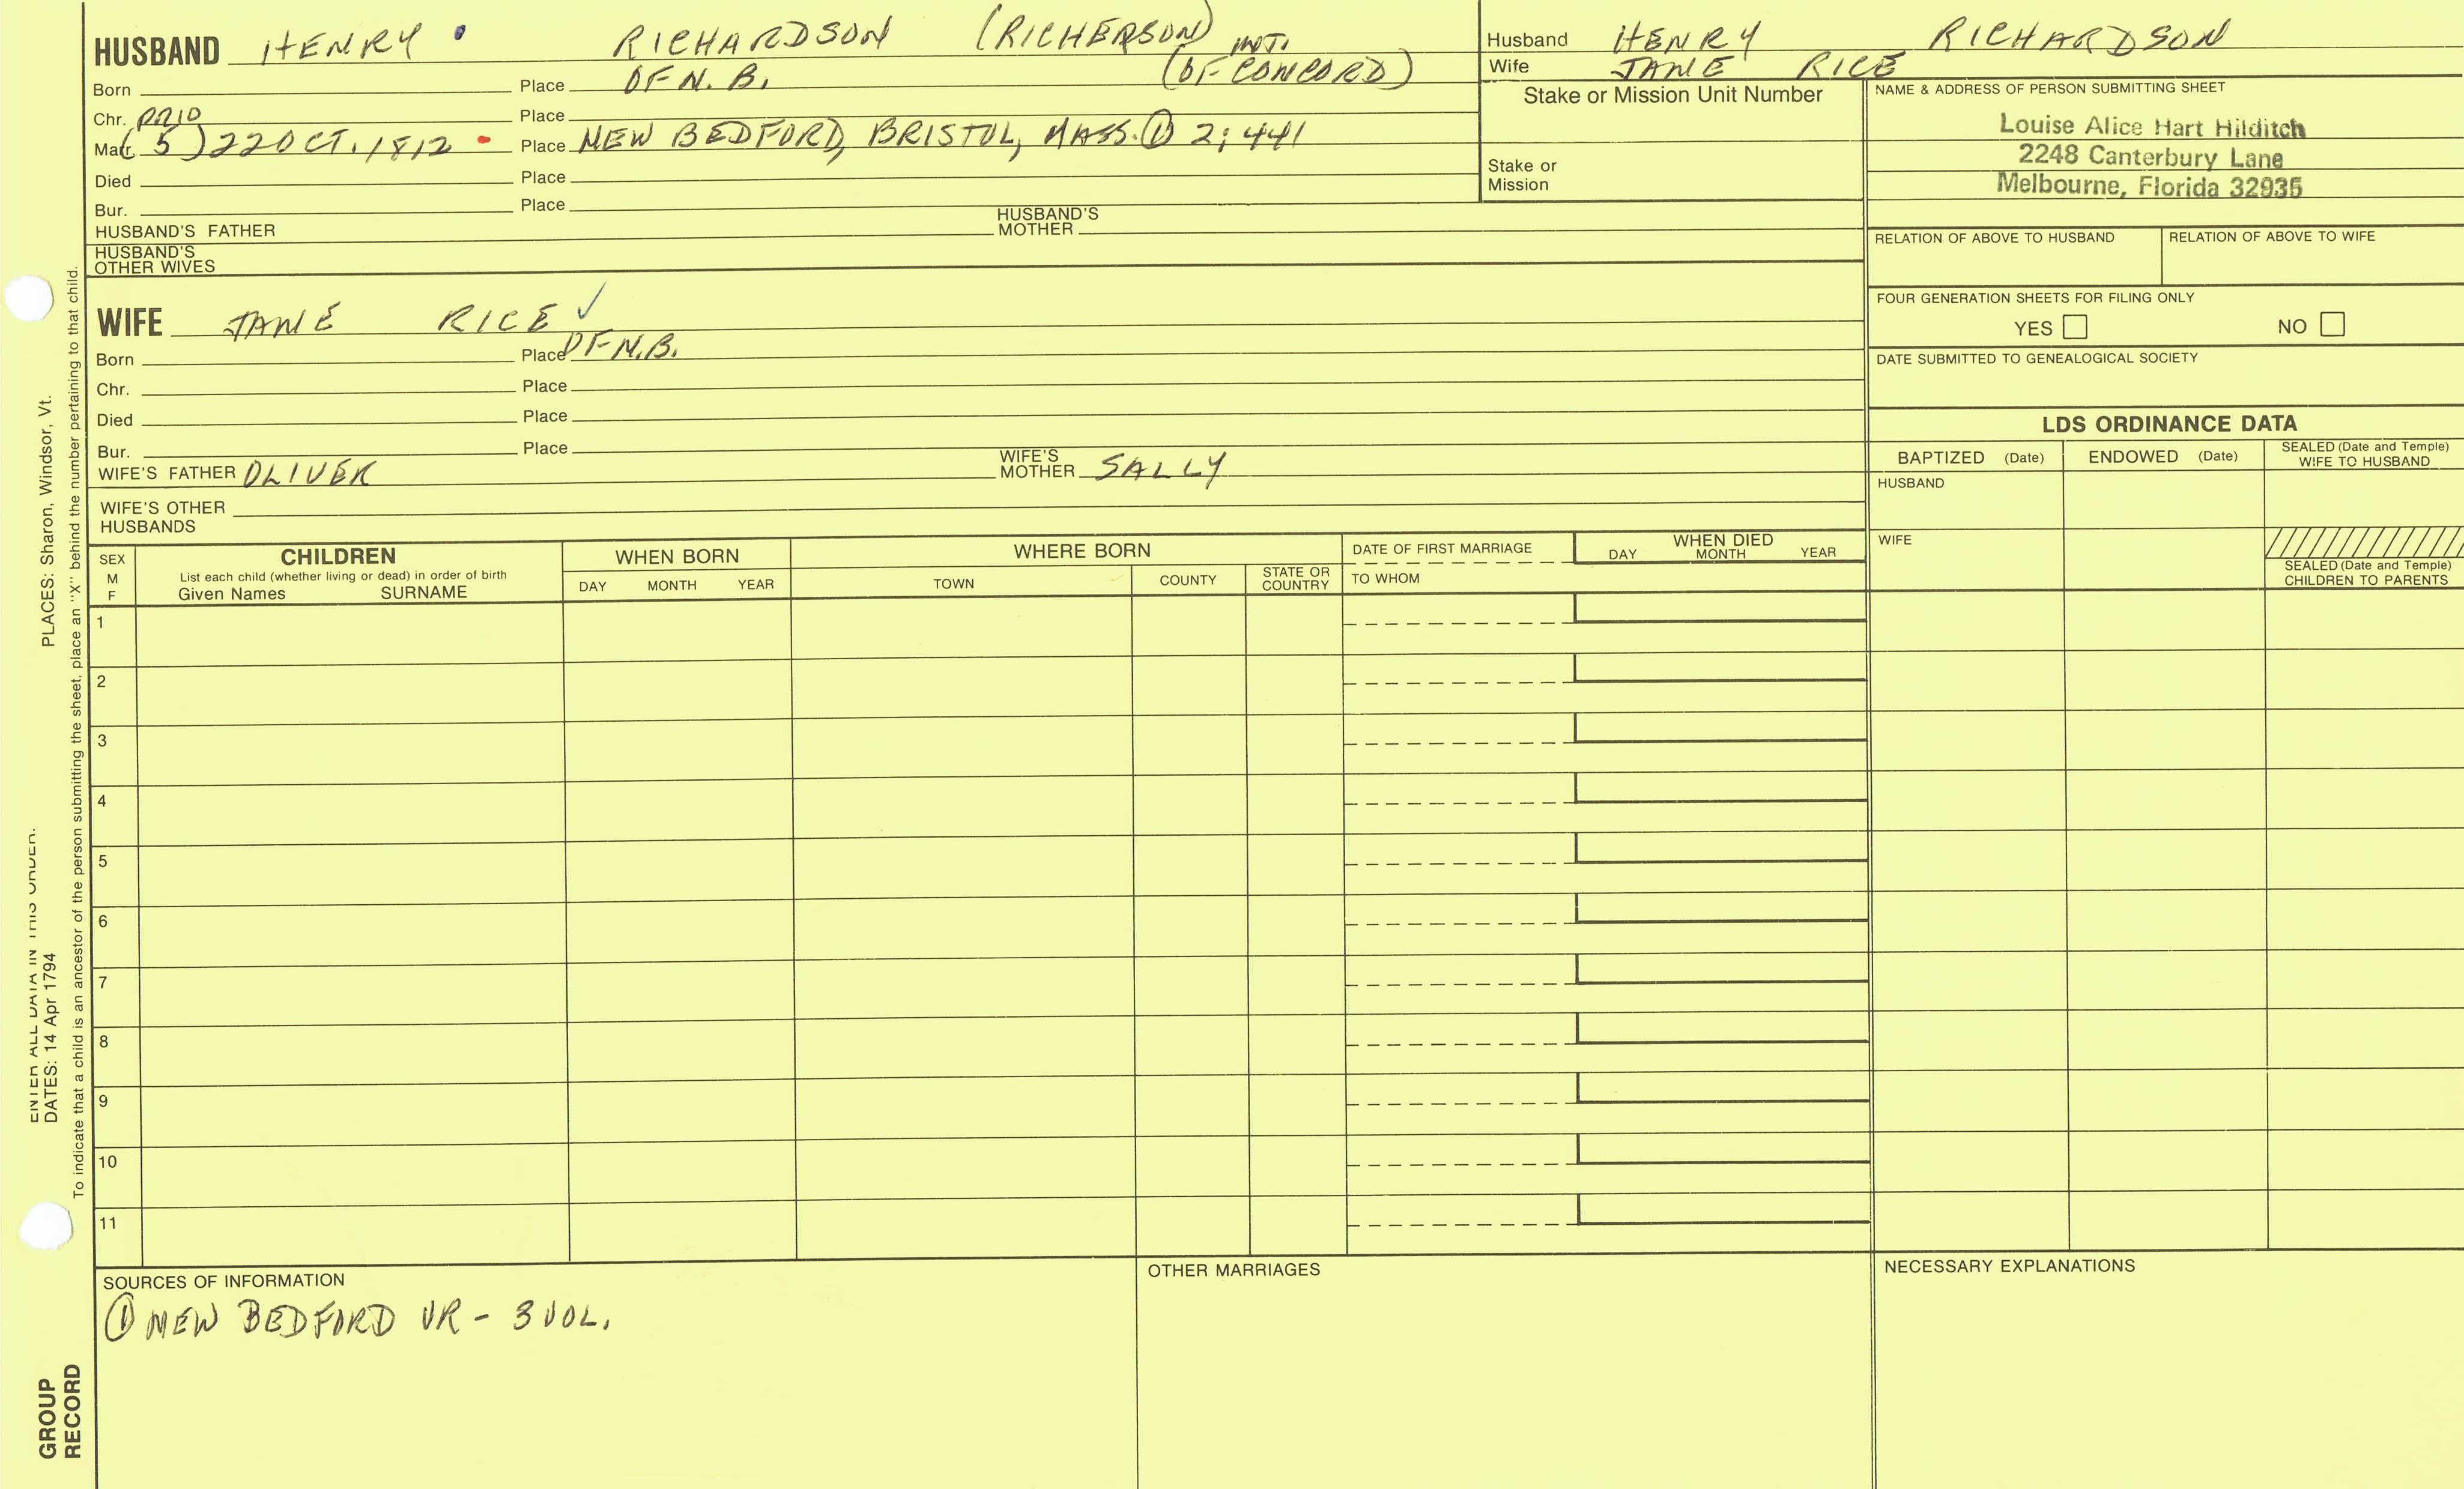 HUSBAND HENRY RICHARDSON (RICHERSON) INT.
Born Place OF N. B. (OF CONCORD)
Chr. Place
Marr. (5) 22 OCT. 1812 Place NEW BEDFORD, BRISTOL, MASS. ① 2; 441
Died Place
Bur. Place
HUSBAND'S FATHER HUSBAND'S MOTHER
HUSBAND'S OTHER WIVES
Husband HENRY RICHARDSON
Wife JANE RICE
Stake or Mission Unit Number
Stake or
Mission
NAME & ADDRESS OF PERSON SUBMITTING SHEET
Louise Alice Hart Hilditch
2248 Canterbury Lane
Melbourne, Florida 32935
RELATION OF ABOVE TO HUSBAND RELATION OF ABOVE TO WIFE
FOUR GENERATION SHEETS FOR FILING ONLY
YES NO
DATE SUBMITTED TO GENEALOGICAL SOCIETY
WIFE JANE RICE ✓
Born Place OF N.B.
Chr. Place
Died Place
Bur. Place
WIFE'S FATHER OLIVER WIFE'S MOTHER SALLY
WIFE'S OTHER
HUSBANDS
LDS ORDINANCE DATA
BAPTIZED (Date) ENDOWED (Date) SEALED (Date and Temple) WIFE TO HUSBAND
HUSBAND
WIFE
SEALED (Date and Temple)
CHILDREN TO PARENTS
SEX
M
F
CHILDREN
List each child (whether living or dead) in order of birth
Given Names SURNAME
WHEN BORN
DAY MONTH YEAR
WHERE BORN
TOWN COUNTY STATE OR COUNTRY
DATE OF FIRST MARRIAGE
TO WHOM
WHEN DIED
DAY MONTH YEAR
1
2
3
4
5
6
7
8
9
10
11
SOURCES OF INFORMATION
① NEW BEDFORD VR - 3 VOL.
OTHER MARRIAGES
NECESSARY EXPLANATIONS
ENTER ALL DATA IN THIS ORDER:
DATES: 14 Apr 1794 PLACES: Sharon, Windsor, Vt.
To indicate that a child is an ancestor of the person submitting the sheet, place an "X" behind the number pertaining to that child.
GROUP
RECORD